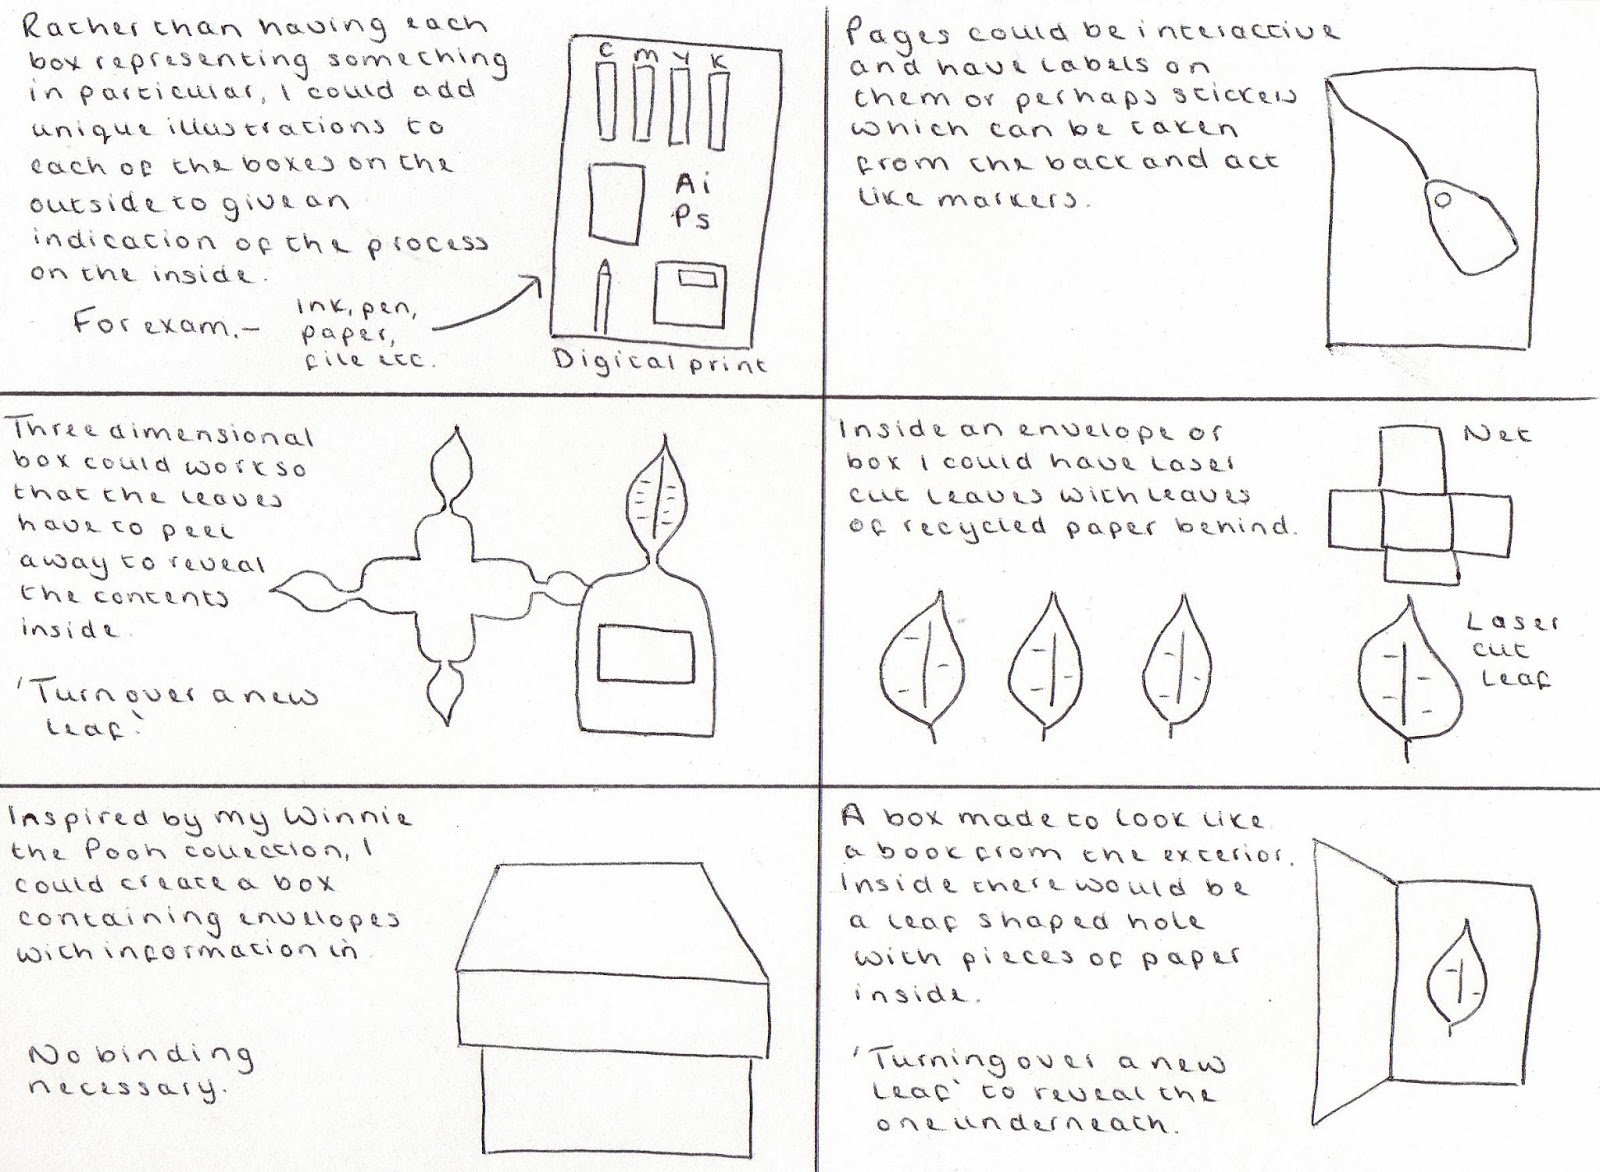 Rather than having each
box representing something
in particular, I could add
unique illustrations to
each of the boxes on the
outside to give an
indication of the process
on the inside.
For exam.-
ink, pen,
paper,
file etc.
C M Y K
Ai
Ps
Digital print
Pages could be interactive
and have labels on
them or perhaps stickers
which can be taken
from the back and act
like markers.
Three dimensional
box could work so
that the leaves
have to peel
away to reveal
the contents
inside.
'Turn over a new
leaf'
Inside an envelope or
box I could have laser
cut leaves with leaves
of recycled paper behind.
Net
Laser
cut
leaf
Inspired by my Winnie
the Pooh collection, I
could create a box
containing envelopes
with information in.
No binding
necessary.
A box made to look like
a book from the exterior.
Inside there would be
a leaf shaped hole
with pieces of paper
inside.
'Turning over a new
leaf' to reveal the
one underneath.